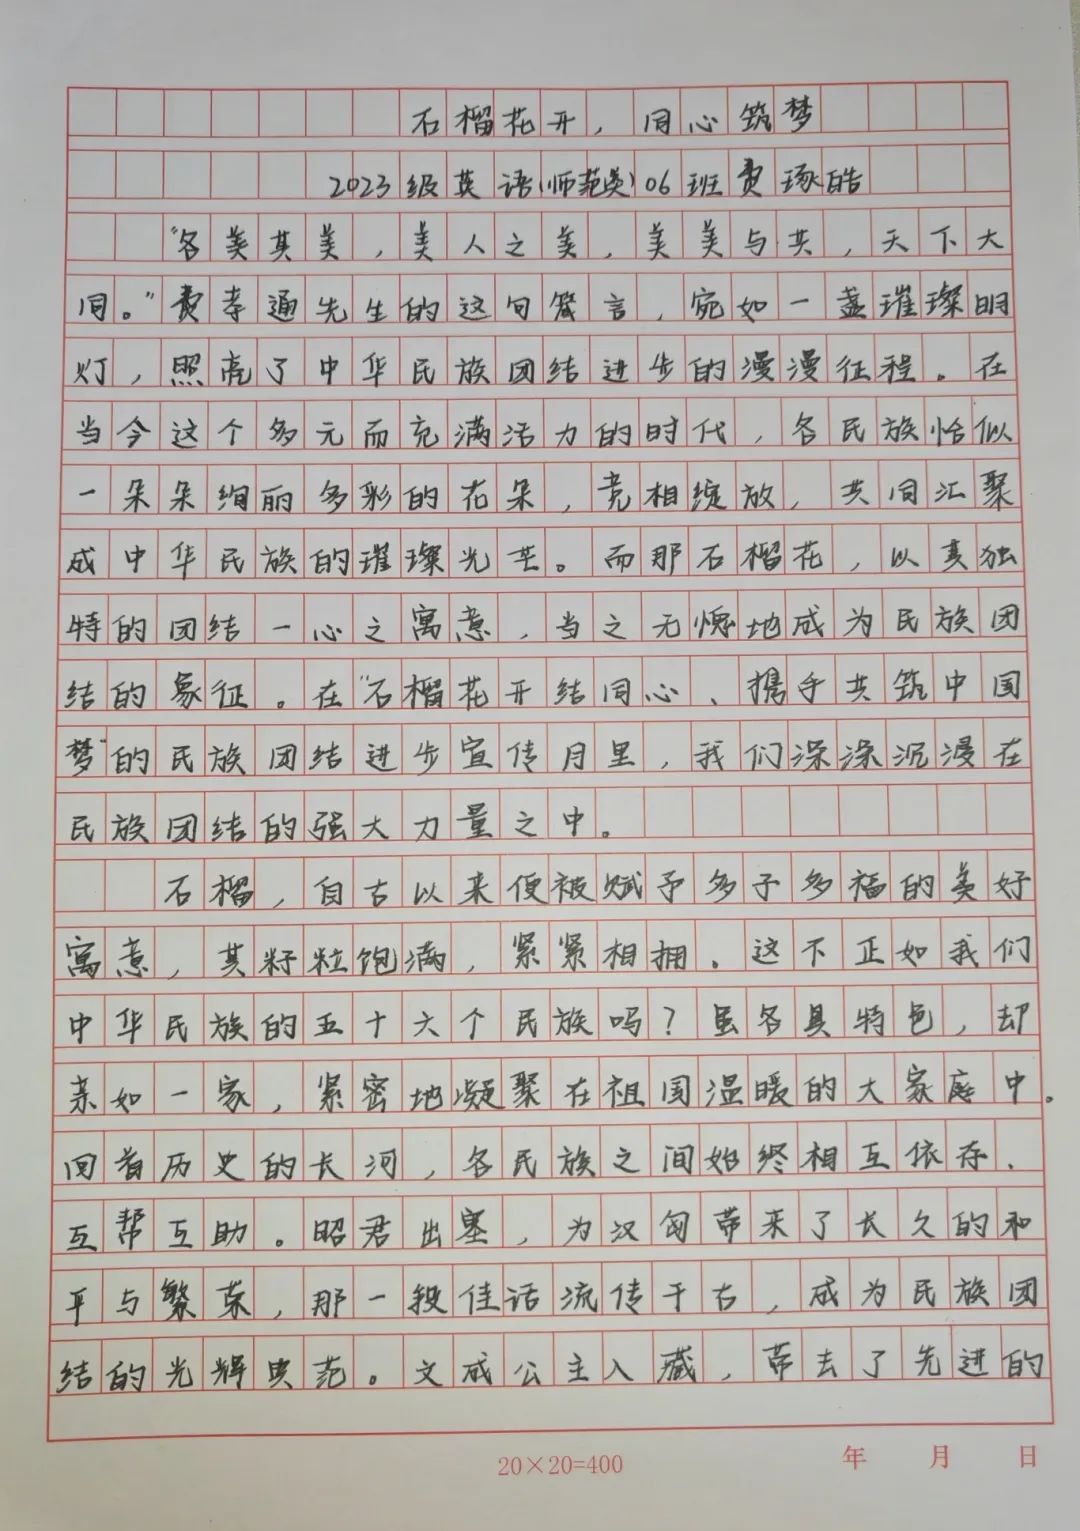 石榴花开，同心筑梦
2023级英语(师范类)06班费琢皓
“各美其美，美人之美，美美与共，天下大
同。”费孝通先生的这句箴言，宛如一盏璀璨明
灯，照亮了中华民族团结进步的漫漫征程。在
当今这个多元而充满活力的时代，各民族恰似
一朵朵绚丽多彩的花朵，竞相绽放，共同汇聚
成中华民族的璀璨光芒。而那石榴花，以其独
特的团结一心之寓意，当之无愧地成为民族团
结的象征。在“石榴花开结同心、携手共筑中国
梦”的民族团结进步宣传月里，我们深深沉浸在
民族团结的强大力量之中。
石榴，自古以来便被赋予多子多福的美好
寓意，其籽粒饱满，紧紧相拥。这不正如我们
中华民族的五十六个民族吗？虽各具特色，却
亲如一家，紧密地凝聚在祖国温暖的大家庭中。
回首历史的长河，各民族之间始终相互依存、
互帮互助。昭君出塞，为汉匈带来了长久的和
平与繁荣，那一段佳话流传千古，成为民族团
结的光辉典范。文成公主入藏，带去了先进的
20×20=400
年 月 日